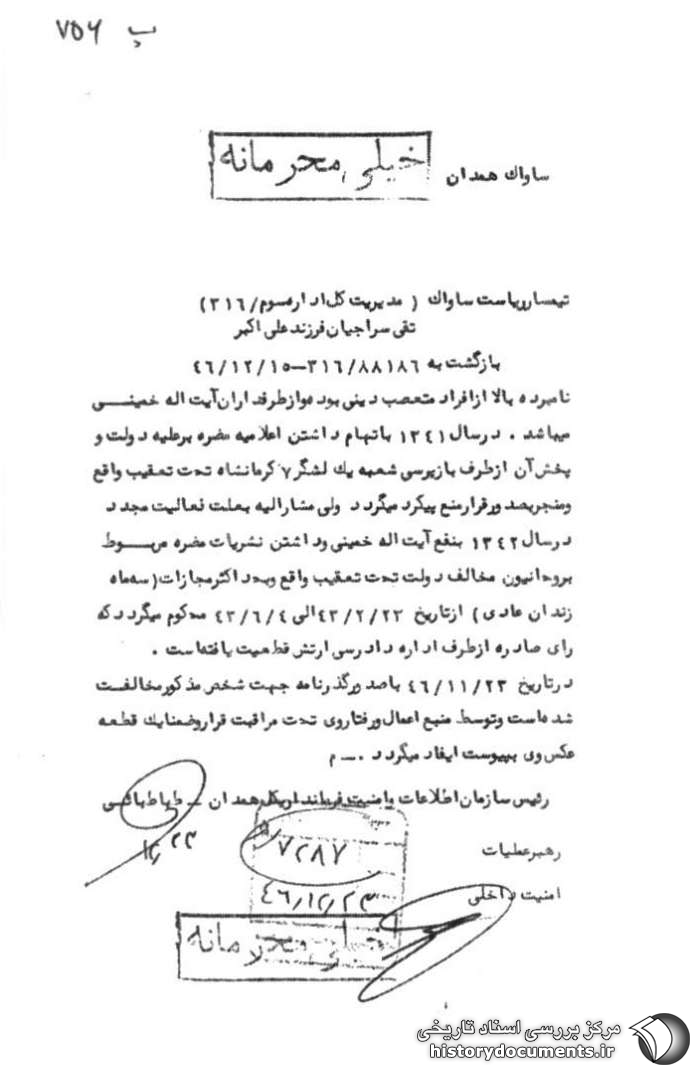 ۷۵۶ پ
خیلی محرمانه
ساواك همدان
تیمسار ریاست ساواك ( مدیریت کل اداره سوم/۳۱۶)
تقی سراجیان فرزند علی اکبر
بازگشت به ۳۱۶/۸۸۱۸۶-۴۶/۱۲/۱۵
نامبرده بالا از افراد متعصب دینی بوده و از طرفداران آیت اله خمینی
میباشد . در سال ۱۳۴۱ باتهام داشتن اعلامیه مضره برعلیه دولت و
پخش آن از طرف بازپرسی شعبه یك لشگر ۷ کرمانشاه تحت تعقیب واقع
ومنجر بصدور قرار منع پیگرد میگردد ولی مشارالیه بعلت فعالیت مجدد
در سال ۱۳۴۲ بنفع آیت اله خمینی وداشتن نشریات مضره مربوط
بروحانیون مخالف دولت تحت تعقیب واقع وبحداکثر مجازات (سه ماه
زندان عادی) از تاریخ ۴۳/۲/۲۳ الی ۴۳/۶/۴ محکوم میگردد که
رای صادره از طرف اداره دادرسی ارتش قطعیت یافته است .
در تاریخ ۴۶/۱۱/۲۳ باصدور گذرنامه جهت شخص مذکور مخالفت
شده است وتوسط منبع اعمال ورفتار وی تحت مراقبت قرار وضمنا یك قطعه
عکس وی بپیوست ایفاد میگردد .ـ م
رئیس سازمان اطلاعات وامنیت فرمانداریکل همدان ـ طباطبائی
۱۲/۲۳
رهبر عملیات
۷۲۸۷
امنیت داخلی
۴۶/۱۲/۲۳
خیلی محرمانه
مرکز بررسی اسناد تاریخی
historydocuments.ir